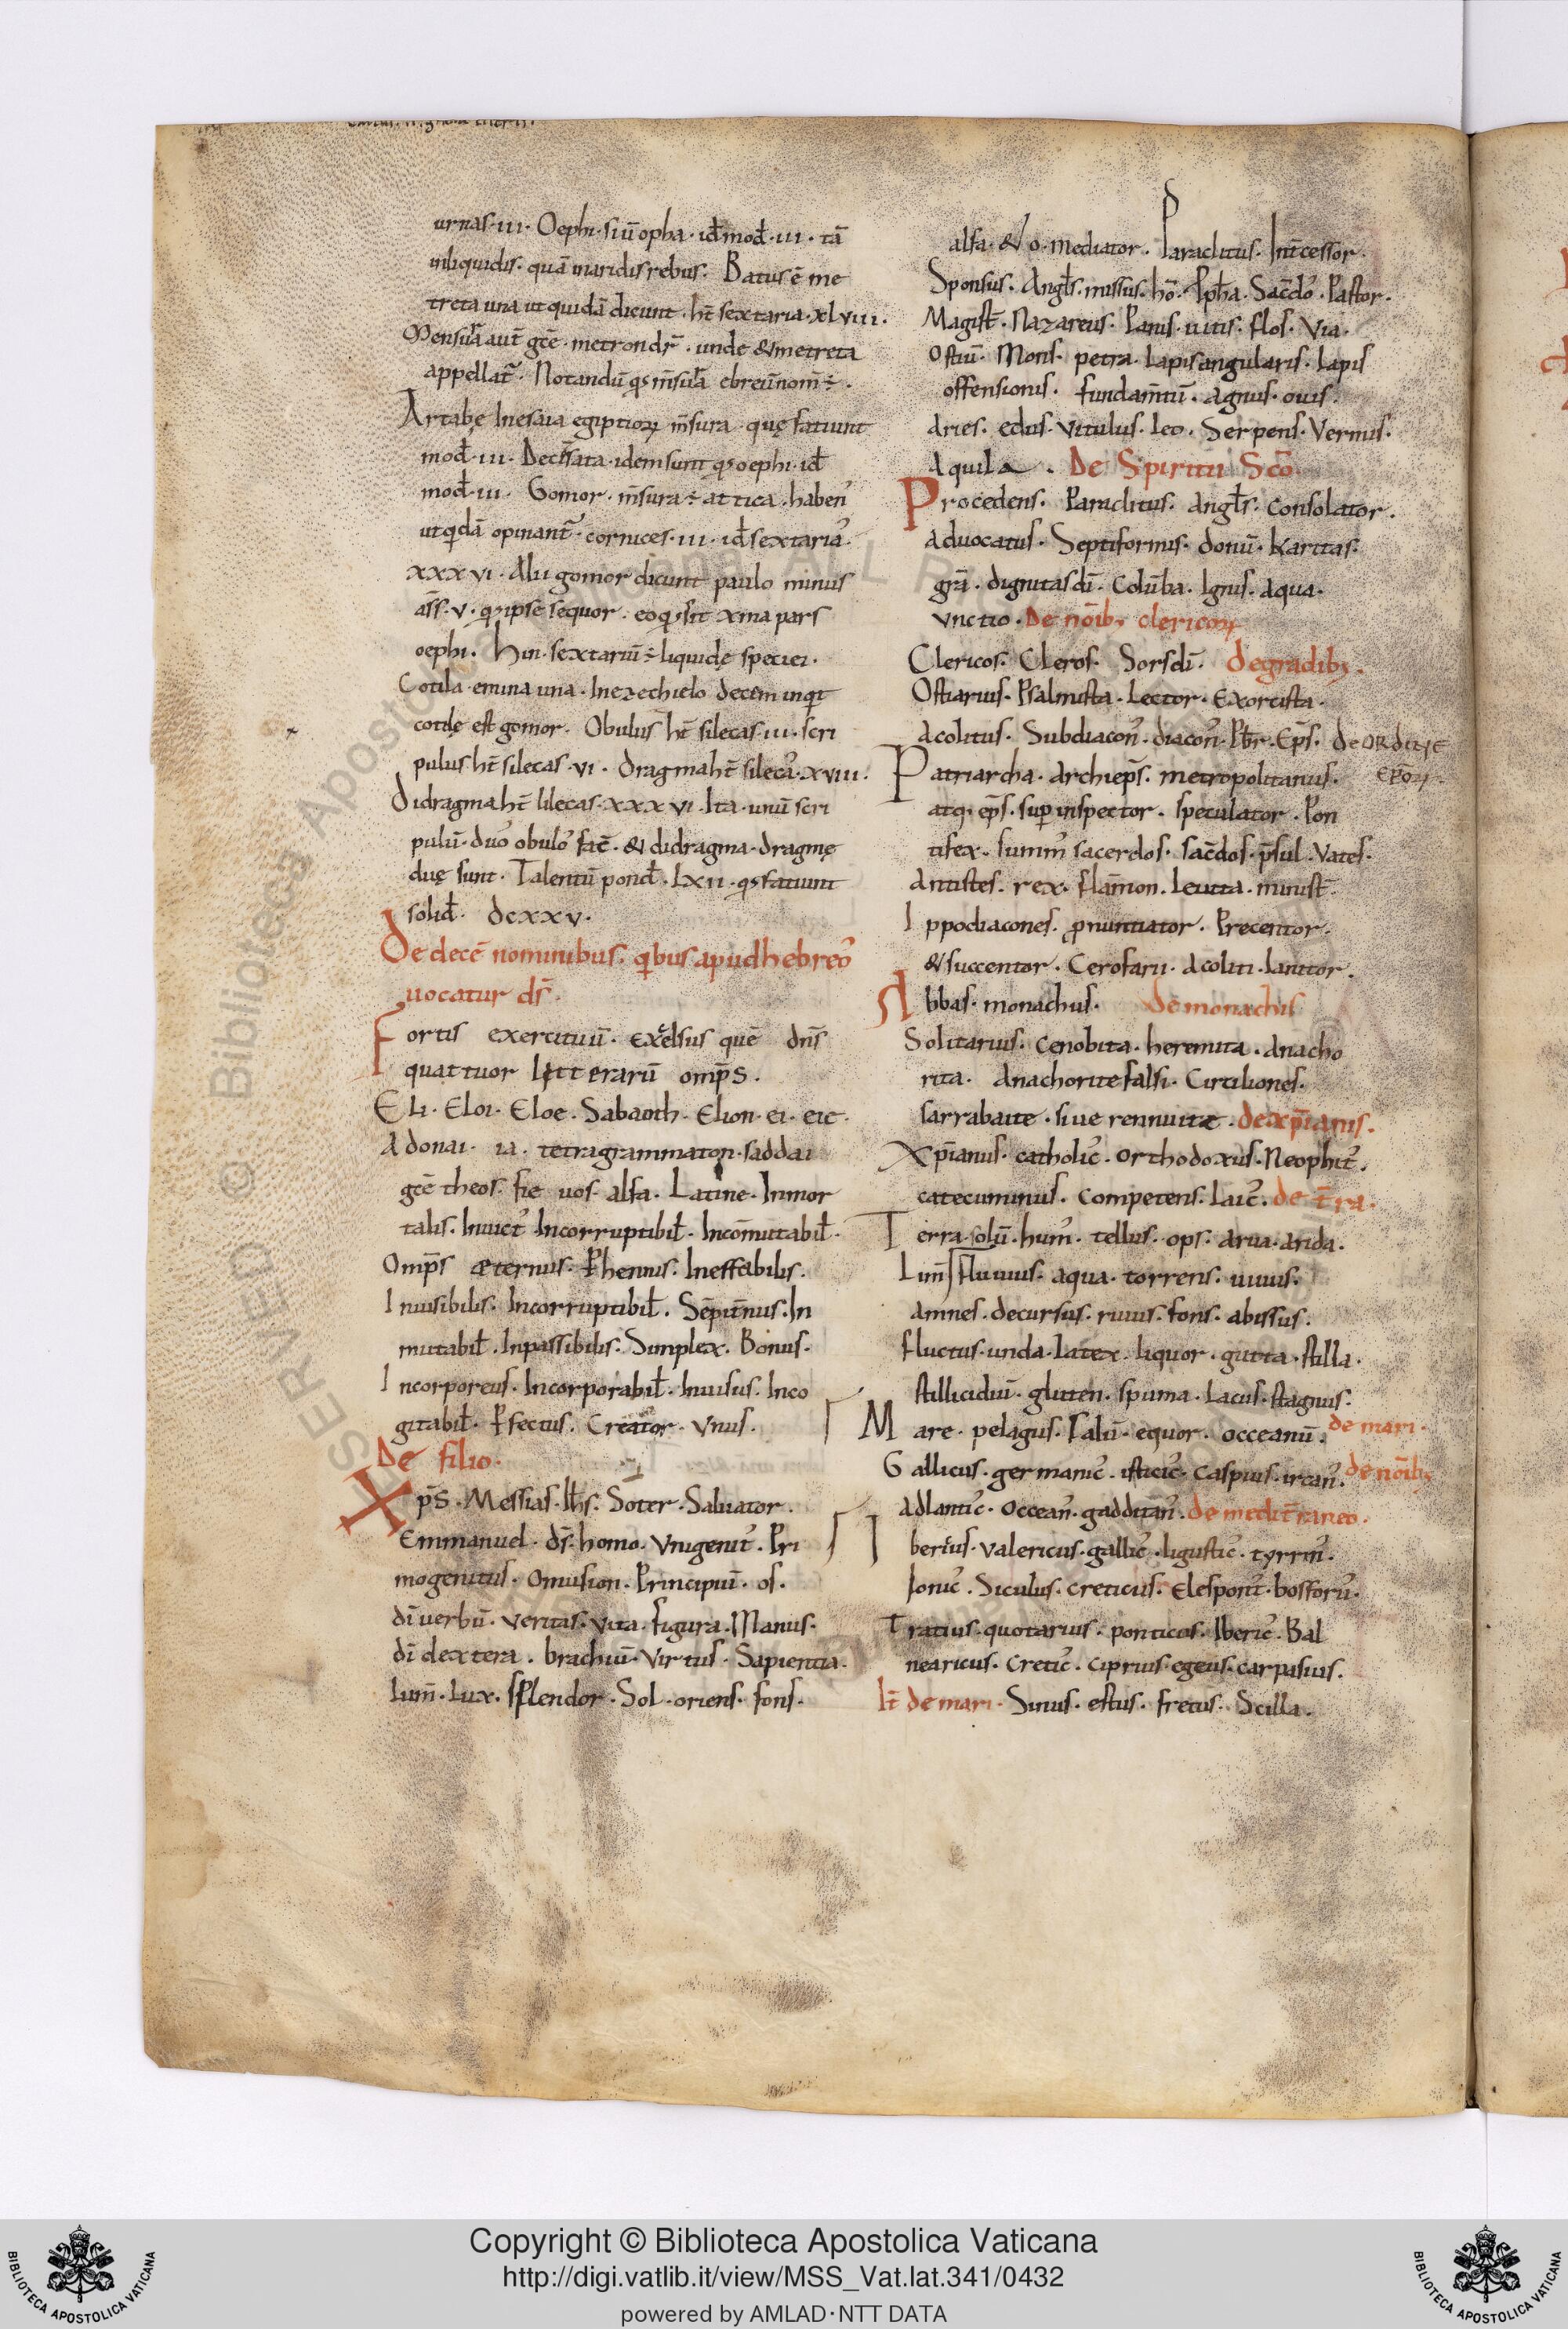 urnas·iii· Oephi·siū opha·id̄ mod̄·iii· tā
inliquidis· quā inaridis rebus· Batus ē me
treta una ut quidā dicunt· ht̄ sextaria·xlviii·
Mensura aut̄ gcē· metron dr̄· unde & metreta
appellat̄· Notandū qs m̄surā ebreū nom̄ ÷·
Artabę Inesaia egiptioꝝ m̄sura· quę fatiunt
mod̄·iii· idem sunt qs oephi·id̄
mod̄·iii· Gomor· m̄sura ÷ attica· haben̄
ut qdā opinant̄· cornices·iii·id̄ sextaria
xxxvi· Alii gomor dicunt paulo minus
ass̄·v· qs ipse sequor· eo qs sit xma pars
oephi· hin· sextariū ÷ liquidę speciei·
Cotila·emina una· Inezechielo decem inqit
cotilę est gomor· Obulus ht̄ silecas·iii·scri
pulus ht̄ silecas·vi· dragma ht̄ sileca᾽·xviii·
didragma ht̄ silecas·xxxvi· Ita·unū scri
pulū·duo᾽ obulo᾽ fac̄·& didragma·dragmę
duę sunt· Talentū pond̄·Lxii·qs fatiunt
solid̄· dcxxv·
De decē nominibus· qibus apud hebreo᾽
uocatur ds̄·
Fortis exercituū· excelsus quē dn̄s
quattuor litterarū omps̄·
Eli·Eloi·Eloe·Sabaoth·Elion·ei·eie·
Adonai· ia· tetragrammaton·saddai
gcē theos· fie uos· alfa· Latine·Inmor
talis· Inuict᾽ Incorruptibil̄· Incōmutabil̄·
Omps̄ æternus· Phennis· Ineffabilis·
Inuisibilis· Incorruptibil̄· Sēpit̄nus·In
mutabil̄· Inpassibilis· Simplex· Bonus·
Incorporeus· Incorporabil̄· Inuisus· Inco
gitabil̄· Pfectus· Creator· Vnus·
De filio·
Xps̄·Messias·Ihs̄·Soter·Saluator·
Emmanuel·ds̄·homo·Vnigenit᾽·Pri
mogenitus·Omusion·Principiū·os·
dī uerbū·Veritas·Vita·figura·Manus·
dī dextera· brachiū·Virtus· Sapientia·
lum̄·Lux·splendor·Sol·oriens·fons·
alfa·& o·mediator· Paraclitus· Int̄cessor·
Sponsus· Angl̄s·missus·hō· Pph̄a·Sac̄do᾽·Pastor·
Magist̄·Nazareus·Panis·uitis·flos·Via·
Ostiū· Mons· petra·Lapis angularis·Lapis
offensionis· fundam̄tū·Agnus·ouis·
Aries· edus·vitulus·Leo·Serpens·Vermis·
Aquila· De Spiritu Scō
Procedens· Paraclitus· Angl̄s·consolator·
Aduocatus·Septiformis·donū·karitas·
grā·dignitas dī·Colūba·Ignis·aqua·
Vnctio·De nōib; clericoꝝ
Clericos·Cleros·Sors dī· de gradib;·
Ostiarius·Psalmista·Lector·Exorcista·
Acolitus·Subdiacon᾽·diacon᾽·Pbr̄·Eps̄· de ORdiNE
EPōꝝ
Patriarcha·archieps̄·metropolitanus·
atq·eps̄·sup inspector· speculator·Pon
tifex·summ᾽ sacerdos·sac̄dos·p̄sul·Vates·
Antistes·rex·flām̄on·Leuita·minist̄·
Ippodiacones·pnuntiator·Precentor·
& succentor·Cerofarii·acoliti·Ianitor·
Abbas·monachus· de monachis
Solitarius·cenobita·heremita·anacho
rita· Anachorite falsi·Cirtiliones·
sarrabaite·siue rennuitæ·de xp̄ianis·
Xp̄ianus·catholic᾽·orthodoxus·Neophit᾽·
catecuminus·competens·Laic᾽·de t̄ra·
Terra·solū·hum᾽·tellus·ops·arua·arida·
Lim᾽ fluuius·aqua·torrens·uiuus·
amnes·decursus·riuus·fons·abissus·
fluctus·unda·Latex·liquor·gutta·stilla·
stillicidiū·gluten·spuma·Lacus·stagnus·
Mare·pelagus·salū·equor·occeanū·de mari·
Gallicus·germanic᾽·isticic᾽·caspius·ircan᾽·de nōib;
Adlantic᾽·occean᾽·gadditan᾽·de medit̄raneo·
Iberius·valericus·gallic᾽·ligustic᾽·tyrrin᾽·
Ionic᾽·Siculus·creticus·Elespont᾽·bosforu᾽·
Tratius·quotarius·ponticus·Iberic᾽·Bal
nearicus·cretic᾽·ciprius·egeus·carpasius·
It̄ de mari·Sinus·estus·fretus·Scilla·
Copyright © Biblioteca Apostolica Vaticana
http://digi.vatlib.it/view/MSS_Vat.lat.341/0432
powered by AMLAD·NTT DATA
BIBLIOTECA APOSTOLICA VATICANA
BIBLIOTECA APOSTOLICA VATICANA